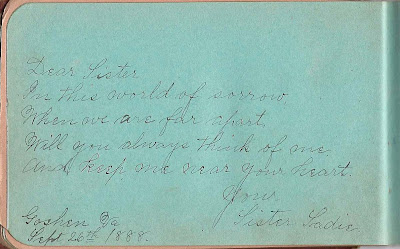 Dear Sister
In this world of sorrow,
When we are far apart,
Will you always think of me
And keep me near your heart.
Your
Sister Sadie.
Goshen Ga
Sept 26th 1888.